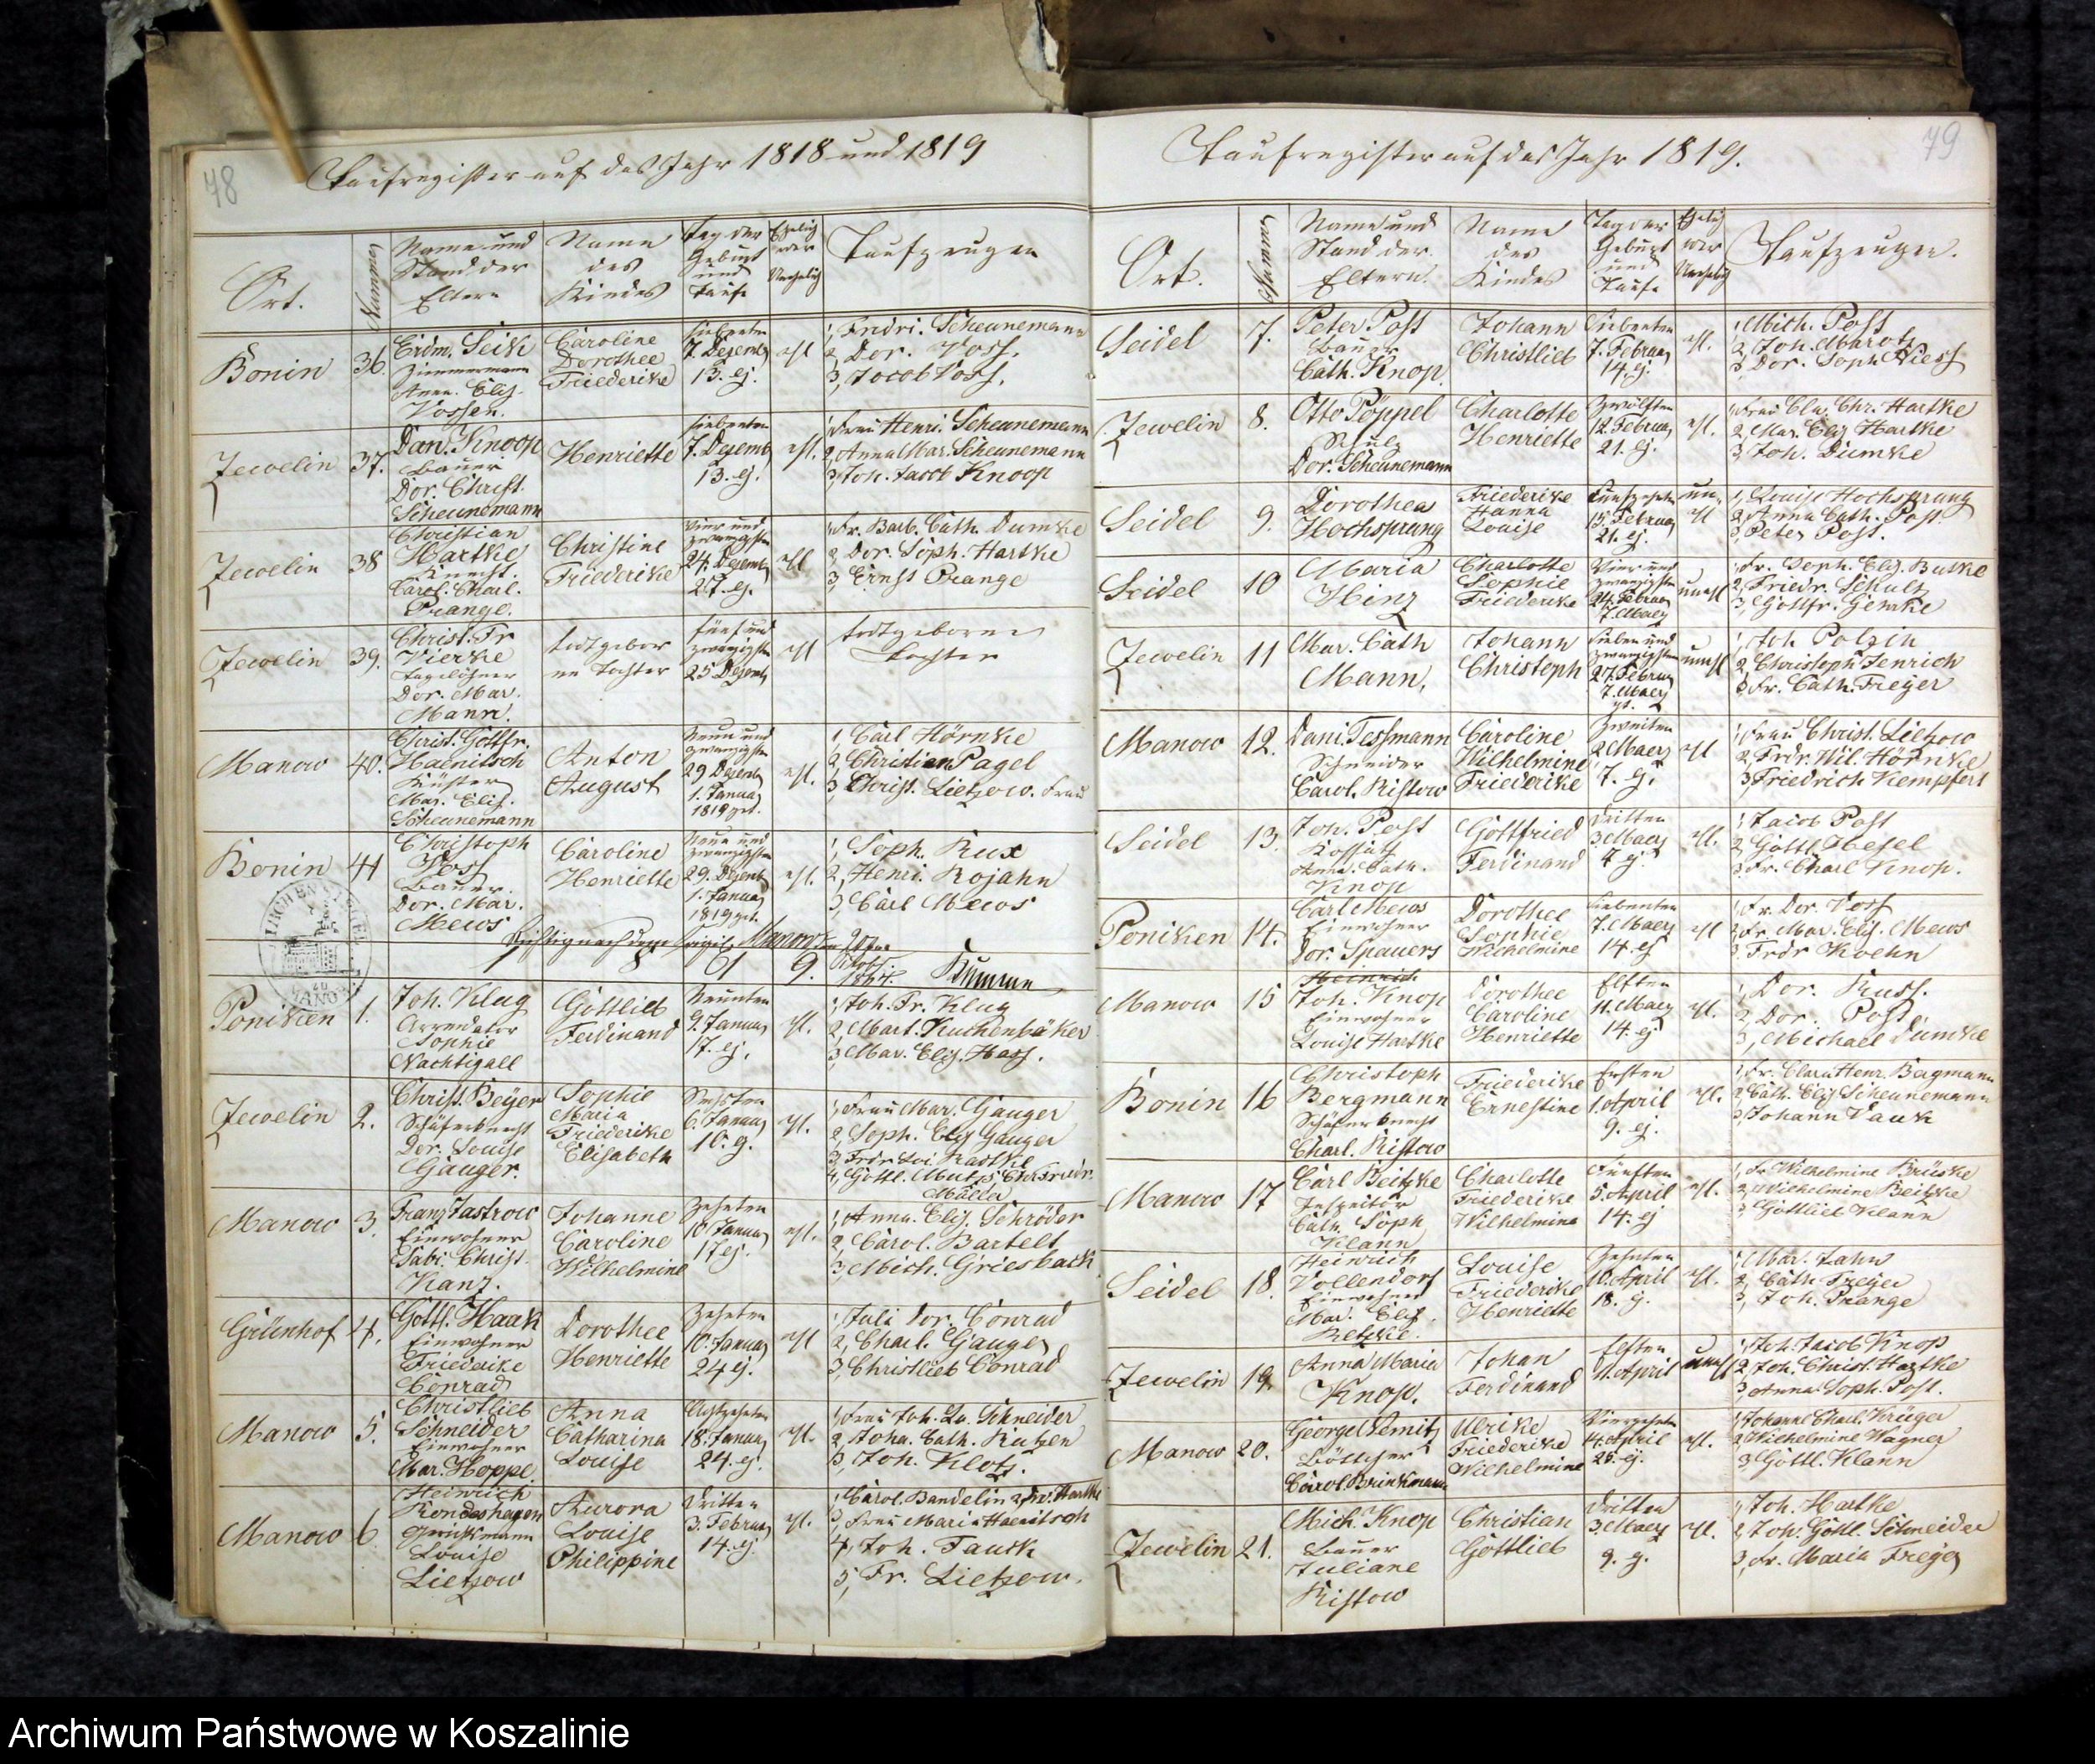 78
Taufregister auf das Jahr 1818 und 1819
Ort.
Nummer
Name und
Stand der
Eltern
Name
des
Kindes
Tag der
Geburt
und
Taufe
Ehelig
oder
Unehelig
Taufzeugen
Bonin
36.
Erdm. Seik
Zimmermann
Ann. Elis.
Vossen.
Caroline
Dorothee
Friederike
siebenten
7. Dezemb
13. ej.
ehl
1, Fridri. Scheunemann
2, Dor. Voss.
3, Jacob Voss.
Jewelin
37.
Dan. Knoop
Bauer
Dor. Christ.
Scheunemann
Henriette
siebenten
7. Dezemb
13. ej.
ehl.
1, Frau Henri. Scheunemann
2, Anna Mar. Scheunemann
3, Joh. Jacob Knoop
Jewelin
38
Christian
Hartke
Knecht.
Carol. Charl.
Prange.
Christine
Friederike
Vier und
zwanzigsten
24. Dezemb
27. ej.
ehl
1, Fr. Barb. Cath. Dumke
2, Dor. Soph. Hartke
3, Ernst Prange
Jewelin
39.
Christ. Fr
Vierke
Tagelöhner
Dor. Mar.
Mann.
todtgebor
ne Tochter
fünf und
zwanzigsten
25 Dezemb
ehl
todtgeborne
Tochter
Manow
40.
Christ. Gottfr.
Haenitsch
Küster
Mar. Elis.
Scheunemann
Anton
August
Neun und
zwanzigsten
29 Dezemb
1. Januar
1819 get.
ehl.
1, Carl Hörnke
2, Christian Pagel
3, Christ. Lietzow. Frau
Bonin
41
Christoph
Voss
Bauer.
Dor. Mar.
Mews
Caroline
Henriette
Neun und
zwanzigsten
29. Dezemb
1. Januar
1819 get.
ehl.
1, Soph. Rux
2, Henri. Rojahn
3, Carl Mews
Manow
Poniken
1.
Joh. Klug
Arrendator
Sophie
Nachtigall
Gottlieb
Ferdinand
Neunten
9. Januar
17. ej.
ehl.
1, Joh. Fr. Klug
2, Mart. Kuchenbäker
3, Mar. Elis. Hass.
Jewelin
2.
Christ. Beyer
Schäferknecht
Dor. Louise
Gauger.
Sophie
Maria
Friederike
Elisabeth
Sechsten
6. Januar
10. ej.
ehl.
1, Frau Mar. Gauger
2, Soph. Elis Gauger
3, Frdr Lui. Radtke
Müller
Manow
3.
Franz Jastrow
Einwohner
Sabi. Christ.
Kanz.
Johanne
Caroline
Wilhelmine
Zehnten
10 Januar
17 ej.
ehl.
1, Anna. Elis. Schröder
2, Carol. Bartelt
3, Mich. Griesbach
Grünhof
4.
Gottl. Haak
Einwohner
Friederike
Conrad
Dorothee
Henriette
Zehnten
10. Januar
24 ej.
ehl
1, Juli Dor. Conrad
2, Charl. Gauger
3, Christlieb Conrad
Manow
5.
Christlieb
Schneider
Einwohner
Mar. Hoppe.
Anna
Catharina
Louise
Achtzehnten
18. Januar
24. ej.
ehl.
1, Frau Joh. Lu. Schneider
2, Joha. Cath. Rutzen
3, Joh. Klotz.
Manow
6.
Heinrich
Kondeshagen
Louise
Lietzow
Aurora
Louise
Philippine
Dritten
3. Februar
14. ej.
ehl.
1, Carol. Bandelin 2, Fr. Hartke
3, Frau Maria Haenitsch
4, Joh. Tauck
5, Fr. Lietzow.
79
Taufregister auf das Jahr 1819.
Ort.
Nummer
Name und
Stand der
Eltern.
Name
des
Kindes
Tag der
Geburt
und
Taufe
Ehelig
oder
Unehelig
Taufzeugen.
Seidel
7.
Peter Post
Bauer
Cath. Knop.
Johann
Christlieb
Siebenten
7. Februar
14. ej.
ehl.
1, Mich. Post
2, Joh. Marotz
3, Dor. Soph Niess
Jewelin
8.
Otto Pöppel
Schulz
Dor. Scheunemann
Charlotte
Henriette
Zwölften
12. Februar
21. ej.
ehl.
1, Frau Cla. Chr. Hartke
2, Mar. Elis Hartke
3, Joh. Dumke
Seidel
9.
Dorothea
Hochsprung
Friederike
Hanna
Louise
Funfzehnten
15. Februar
21. ej.
un-
ehl
1, Louise Hochsprung
2, Anna Cath. Post.
3, Peter Post.
Seidel
10
Maria
Hinz
Charlotte
Sophie
Friederike
Vier und
zwanzigsten
24. Februar
7. Maerz
unehl
1, Fr. Soph. Elis. Buske
2, Friedr. Schulz
3, Gottfr. Gemke
Jewelin
11
Mar. Cath
Mann.
Johann
Christoph
Sieben und
zwanzigsten
27. Februar
7. Maerz
gt.
unehl
1, Joh Polzin
2, Christoph Jenrich
3, Fr. Cath. Freyer
Manow
12.
Dani. Tessmann
Schneider
Carol. Ristow
Caroline
Wilhelmine
Friederike
Zweiten
2. Maerz
7. ej.
ehl
1, Frau Christ. Lietzow
2, Frdr. Wil. Hörnke
3, Friedrich Kempfert
Seidel
13.
Joh. Post
Kossäth
Anna. Cath.
Knop
Gottfried
Ferdinand
Dritten
3. Maerz
7 ej.
ehl.
1, Jacob Post
2, Gottl. Hesel
3, Fr. Charl Knop.
Poniken
14.
Carl Mews
Einwohner
Dor. Spauers
Dorothee
Sophie
Wilhelmine
Siebenten
7. Maerz
14. ej
ehl
1, Fr. Dor. Voss
2, Fr Mar. Elis. Mews
3. Frdr Koehn
Manow
15
Heinrich
Joh. Knop
Einwohner
Louise Hartke
Dorothee
Caroline
Henriette
Elften
11. Maerz
14. ej
ehl.
1, Dor. Russ.
2, Dor. Post
3, Michael Dumke
Bonin
16
Christoph
Bergmann
Schäferknecht
Charl. Ristow
Friederike
Ernestine
Ersten
1. April
9. ej.
ehl.
1, Fr. Clara Henr. Bagmann
2, Cath. Elis Scheunemann
3, Johann Tauk
Manow
17
Carl Beitzke
Inspektor
Cath. Soph
Klann
Charlotte
Friederike
Wilhelmine
Fünften
5. April
14. ej
ehl.
1, Fr Wilhelmine Brüske
2, Wilhelmine Beitzke
3, Gottlieb Klann
Seidel
18.
Heinrich
Vollendorf
Einwohner
Mar. Elis.
Retzke.
Louise
Friederike
Henriette
Zehnten
10. April
18. ej.
ehl.
1, Mar. Jahn
2, Cath Freyer
3, Joh. Prange
Jewelin
19.
Anna Maria
Knop.
Johan
Ferdinand
Elften
11. April
unehl
1, Joh. Jacob Knop
2, Joh. Christ. Hartke
3, Anna. Soph. Post.
Manow
20.
George Demitz
Böttcher
Carol. Brinkmann
Ulrike
Friederike
Wilhelmine
Vierzehnten
14. April
25. ej.
ehl.
1, Johanne Charl. Krüger
2, Wilhelmine Wagner
3, Gottl. Klann
Jewelin
21.
Mich. Knop
Bauer
Juliane
Ristow
Christian
Gottlieb
Dritten
3. Maerz
9. ej.
ehl.
1, Joh. Hartke
2, Joh. Gottl. Schneider
3, Fr. Maria Freyer
Archiwum Państwowe w Koszalinie